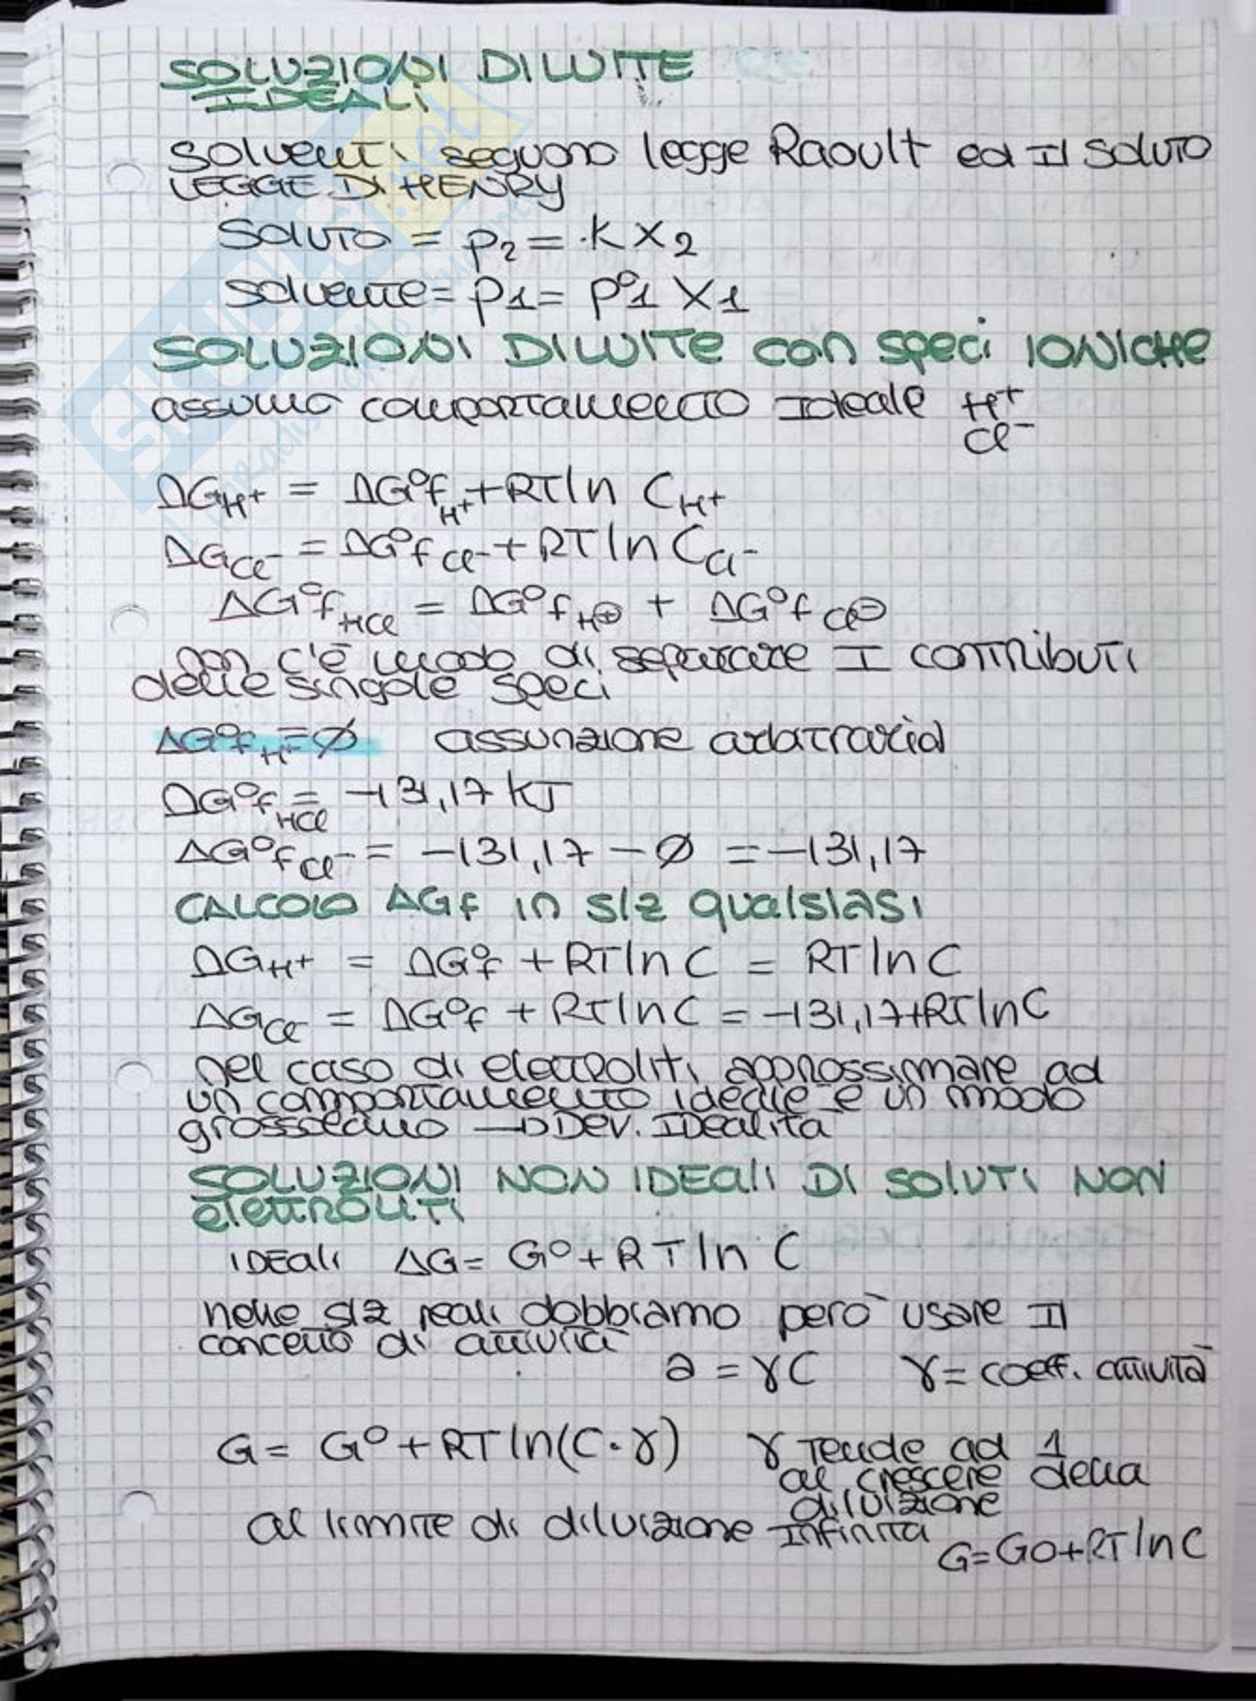 SOLUZIONI DILUITE
IDEALI
solventi seguono legge Raoult ed Il soluto
LEGGE DI HENRY
Soluto = p₂ = ·K X₂
solvente = p1 = p°1 X1
SOLUZIONI DILUITE con speci IONICHE
assumo comportamento Ideale H⁺
Cl⁻
ΔG_H⁺ = ΔG°f_H⁺ + RT ln C_H⁺
ΔG_Cl⁻ = ΔG°f_Cl⁻ + RT ln C_Cl⁻
ΔG°f_HCl = ΔG°f_H⊕ + ΔG°f_Cl⊖
non c'è modo di separare I contributi
delle singole speci
ΔG°f_H⁺ = Ø assunzione arbitraria
ΔG°f_HCl = -131,17 KJ
ΔG°f_Cl⁻ = -131,17 - Ø = -131,17
CALCOLO ΔGf in slz qualsiasi
ΔG_H⁺ = ΔG°f + RT ln C = RT ln C
ΔG_Cl⁻ = ΔG°f + RT ln C = -131,17+RT ln C
nel caso di elettroliti approssimare ad
un comportamento ideale è un modo
grossolano → Dev. IDealità
SOLUZIONI NON IDEALI DI SOLUTI NON
elettroliti
IDEALI ΔG = G° + RT ln C
nelle slz reali dobbiamo però usare Il
concetto di attività
a = γC γ = coeff. attività
G = G° + RT ln(C·γ) γ Tende ad 1
al crescere della
diluizione
al limite di diluizione Infinita
G=G0+RT ln C